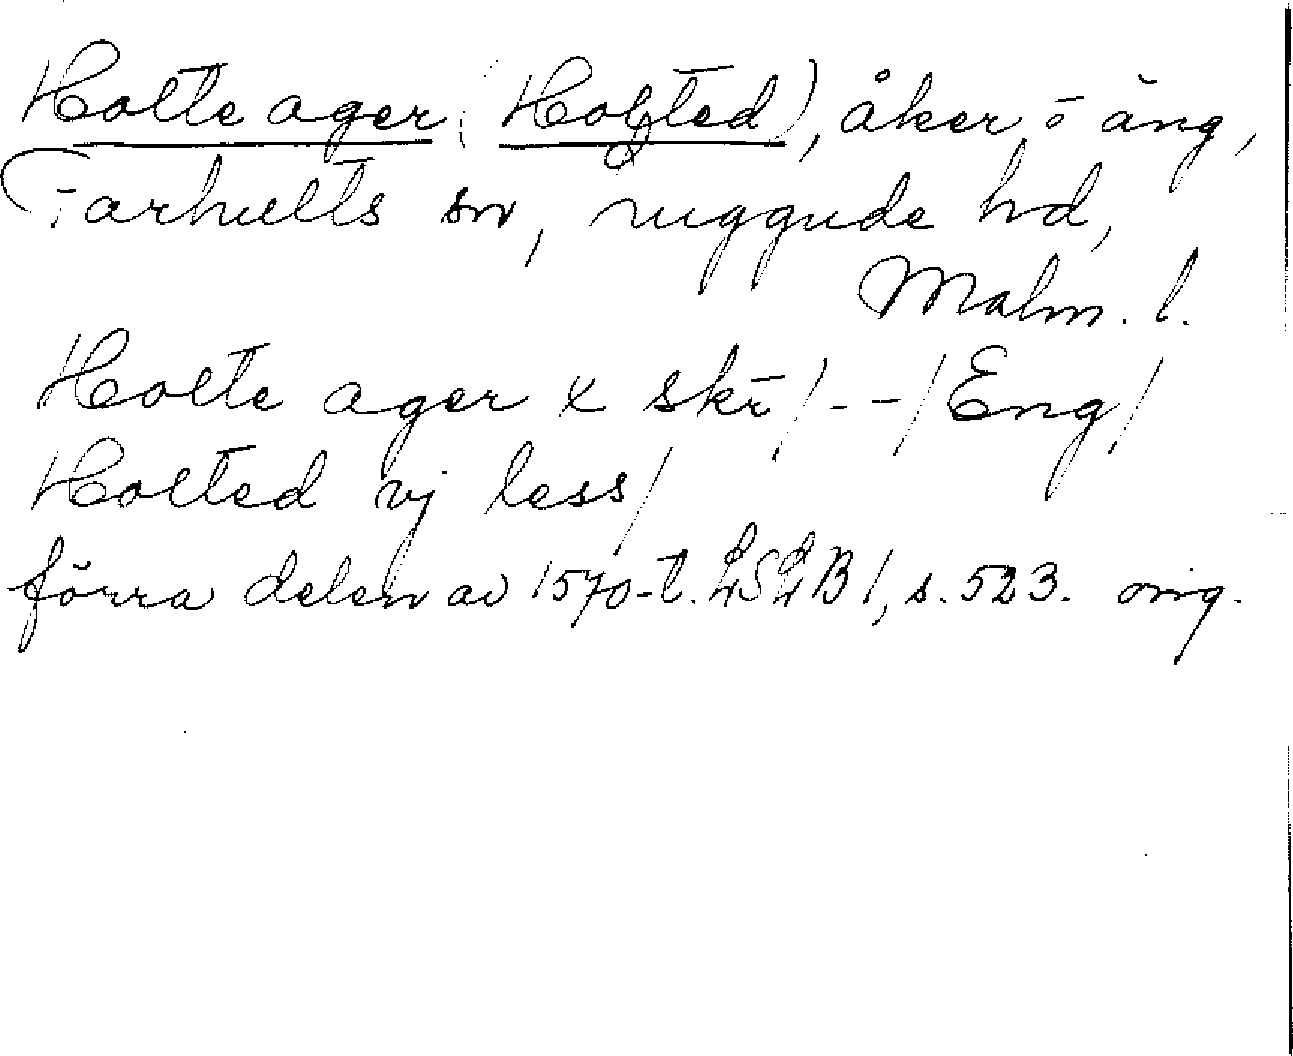 Holte ager (Holted), åker o äng,
Farhults sn, Luggude hd,
Malm. l.
Holte ager x skr / - - / Eng /
Holted vj less /
förra delen av 1570-t. LSLB 1, s. 523. orig.